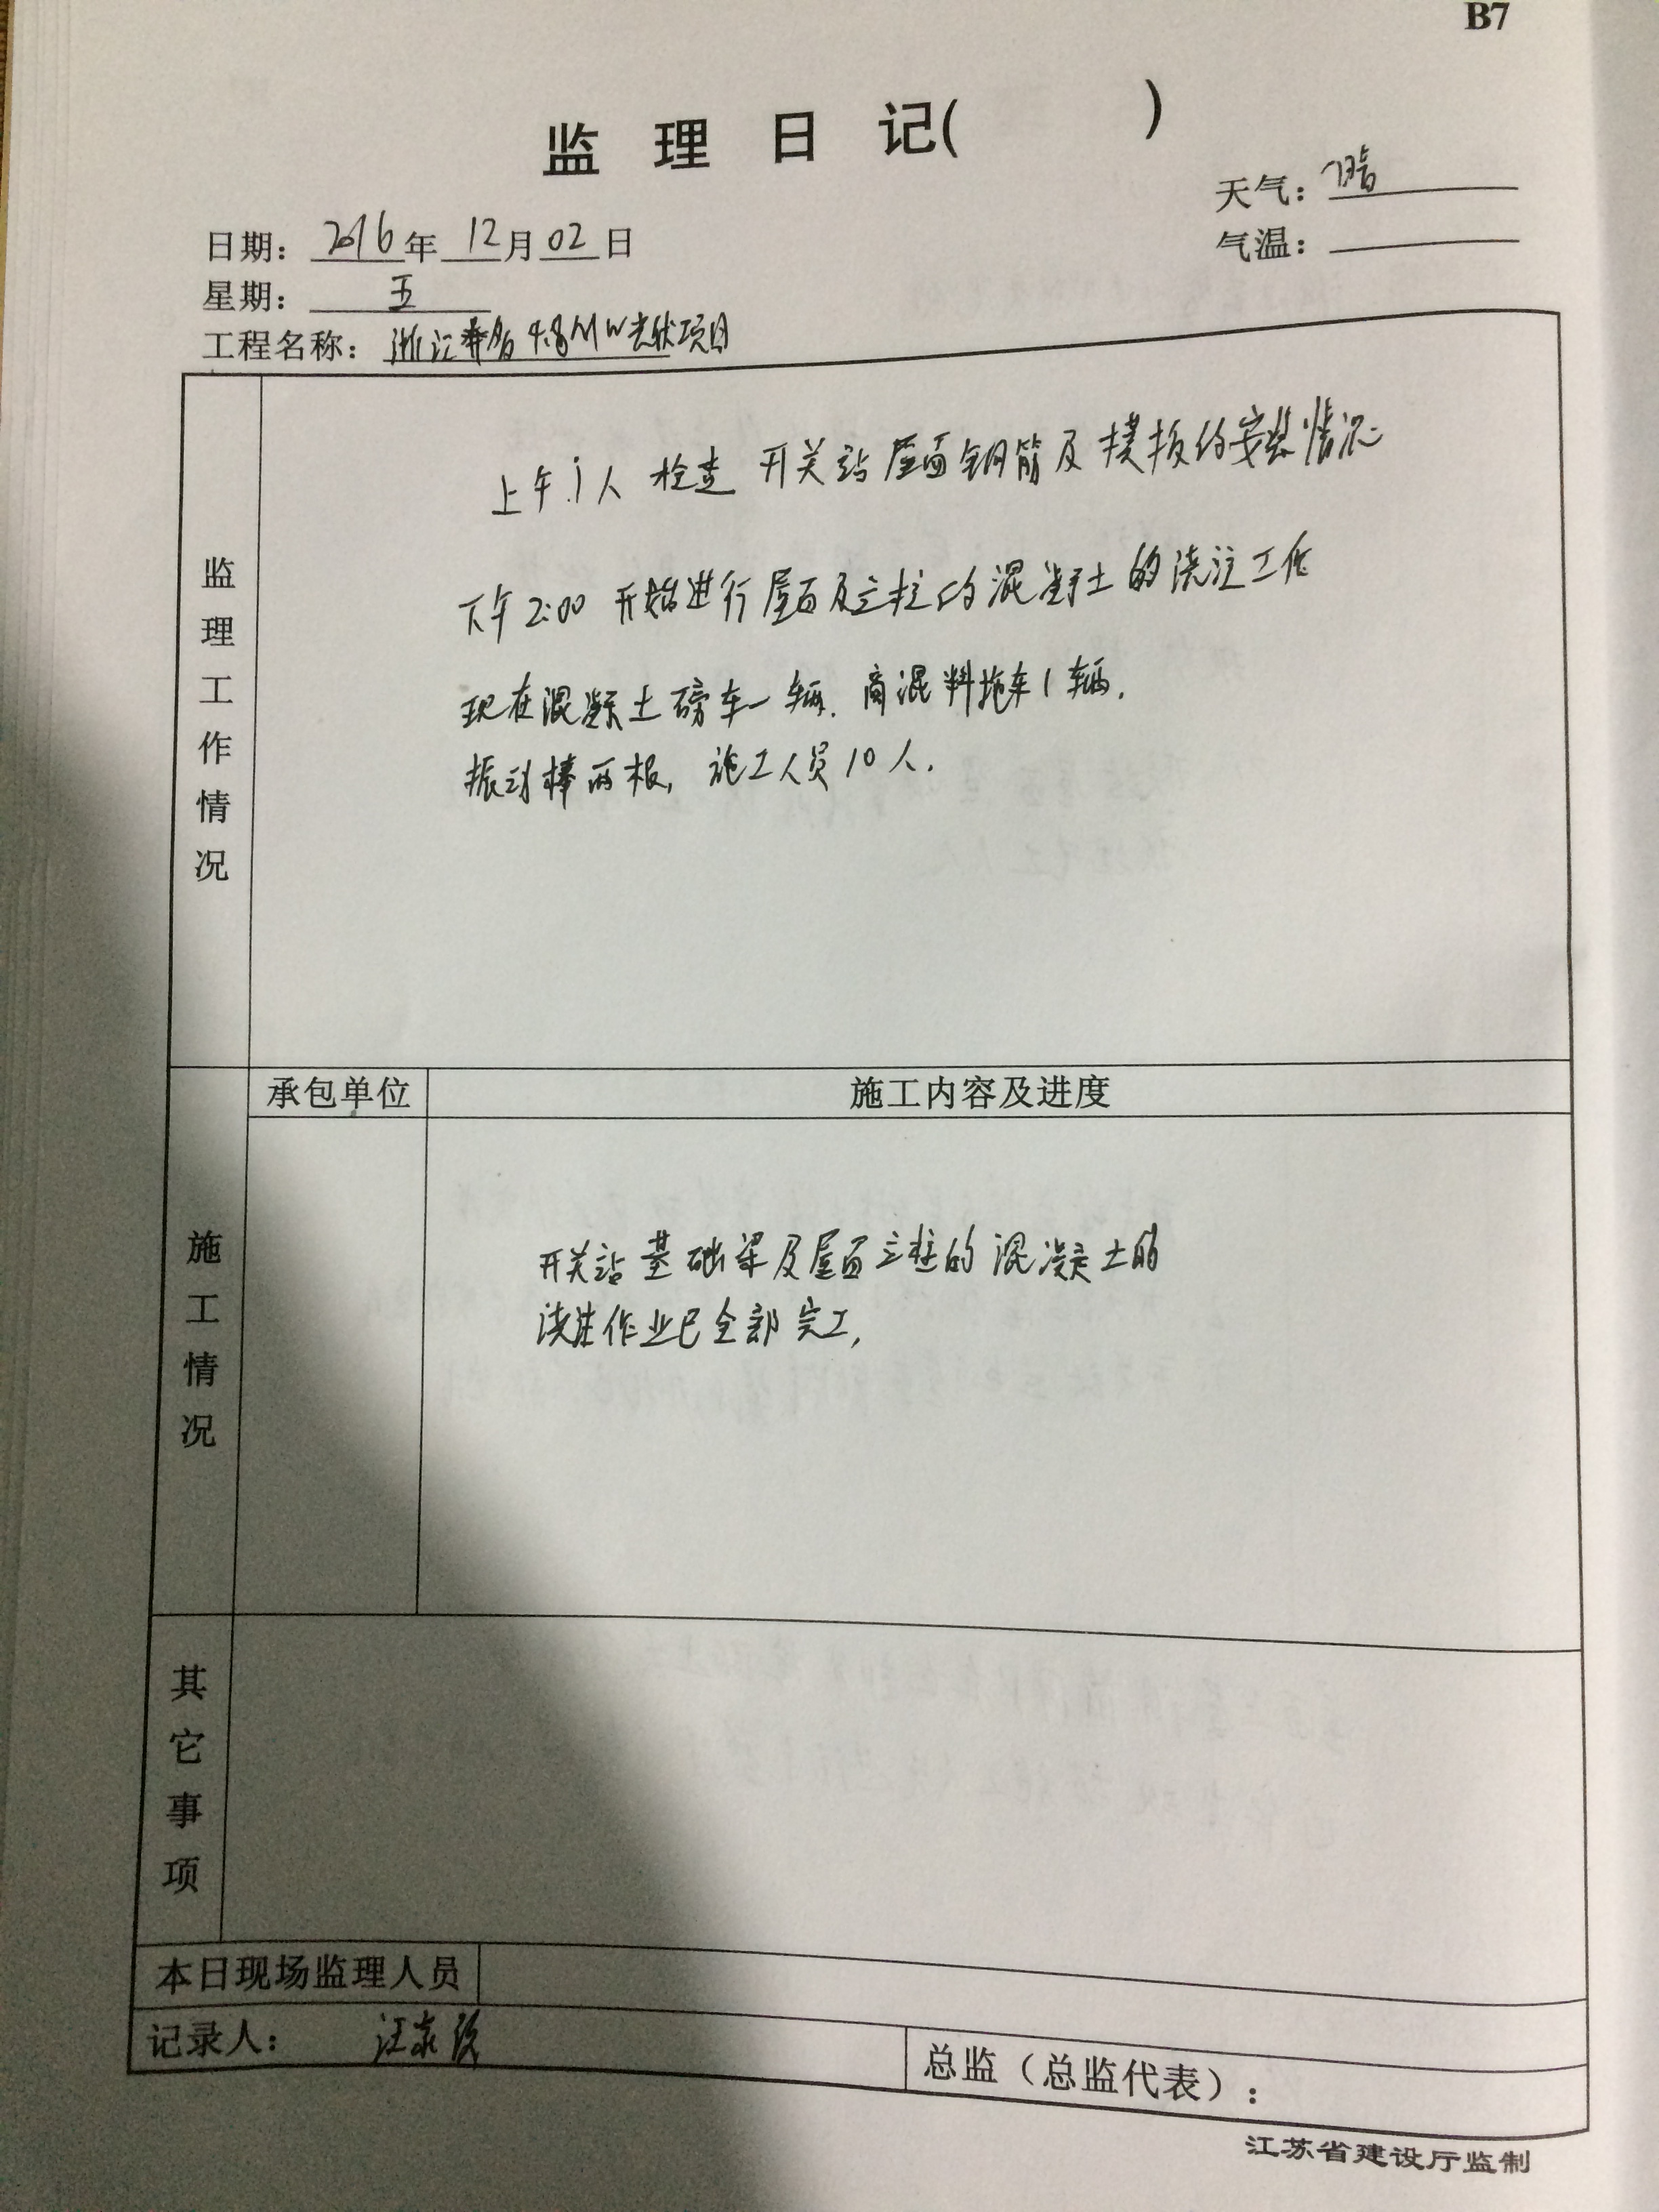 B7
监 理 日 记( )
天气：晴
日期：2016年12月02日
气温：
星期：五
工程名称：浙江 4.8MW光伏项目
监理工作情况
上午 人 检查 开关站屋面钢筋及模板的安装情况
下午2:00 开始进行屋面及立柱的混凝土的浇注工作
现在混凝土磅车一辆. 商混料拖车1辆.
振动棒两根, 施工人员10人.
施工情况
承包单位
施工内容及进度
开关站基础梁及屋面立柱的混凝土的
浇注作业已全部完工,
其它事项
本日现场监理人员
记录人：汪
总监（总监代表）：
江苏省建设厅监制